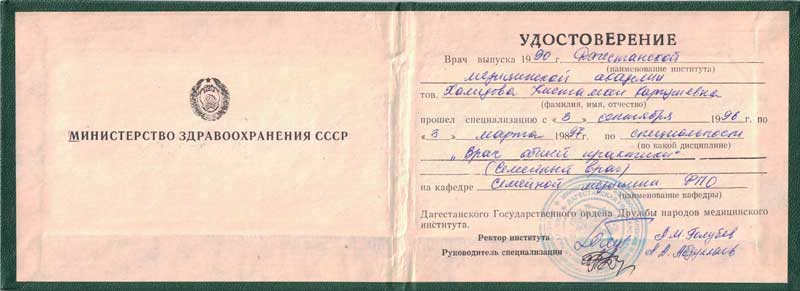 МИНИСТЕРСТВО ЗДРАВООХРАНЕНИЯ СССР
УДОСТОВЕРЕНИЕ
Врач выпуска 1990 г. Дагестанской
(наименование института)
медицинской академии
тов. Хамидова
(фамилия, имя, отчество)
прошел специализацию с « 3 » сентября 1996 г. по
« 3 » марта 1997 г. по специальности
(по какой дисциплине)
„Врач общей практики"
(Семейный врач)
на кафедре Семейной медицины ФПО
(наименование кафедры)
Дагестанского Государственного ордена Дружбы народов медицинского
института.
Ректор института
Руководитель специализации А. Абдуллаев